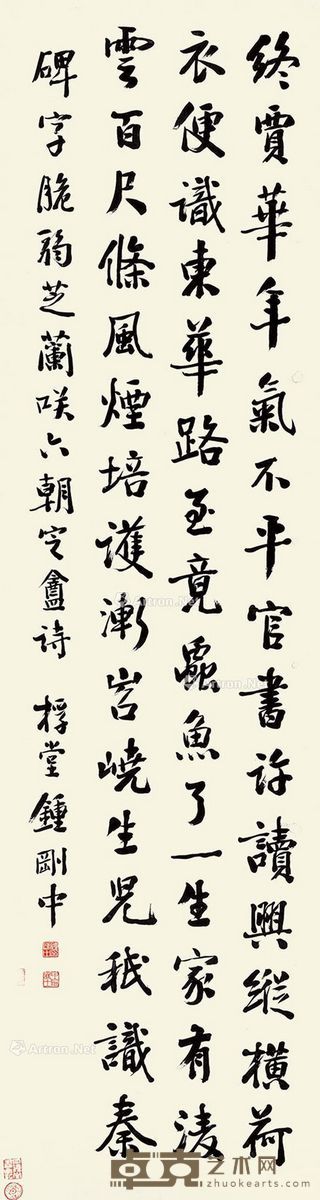 終賈華年氣不平官書許讀興縱橫荷
衣便識東華路至竟蟲魚了一生家有淩
雲百尺條風煙培護漸岧嶢生兒秪識秦
碑字脆弱芝蘭咲六朝定盦詩 桴堂鍾剛中
Artron.Net
Artron.Net
Artron.Net
Artron.Net
卓克艺术网
www.zhuokearts.com